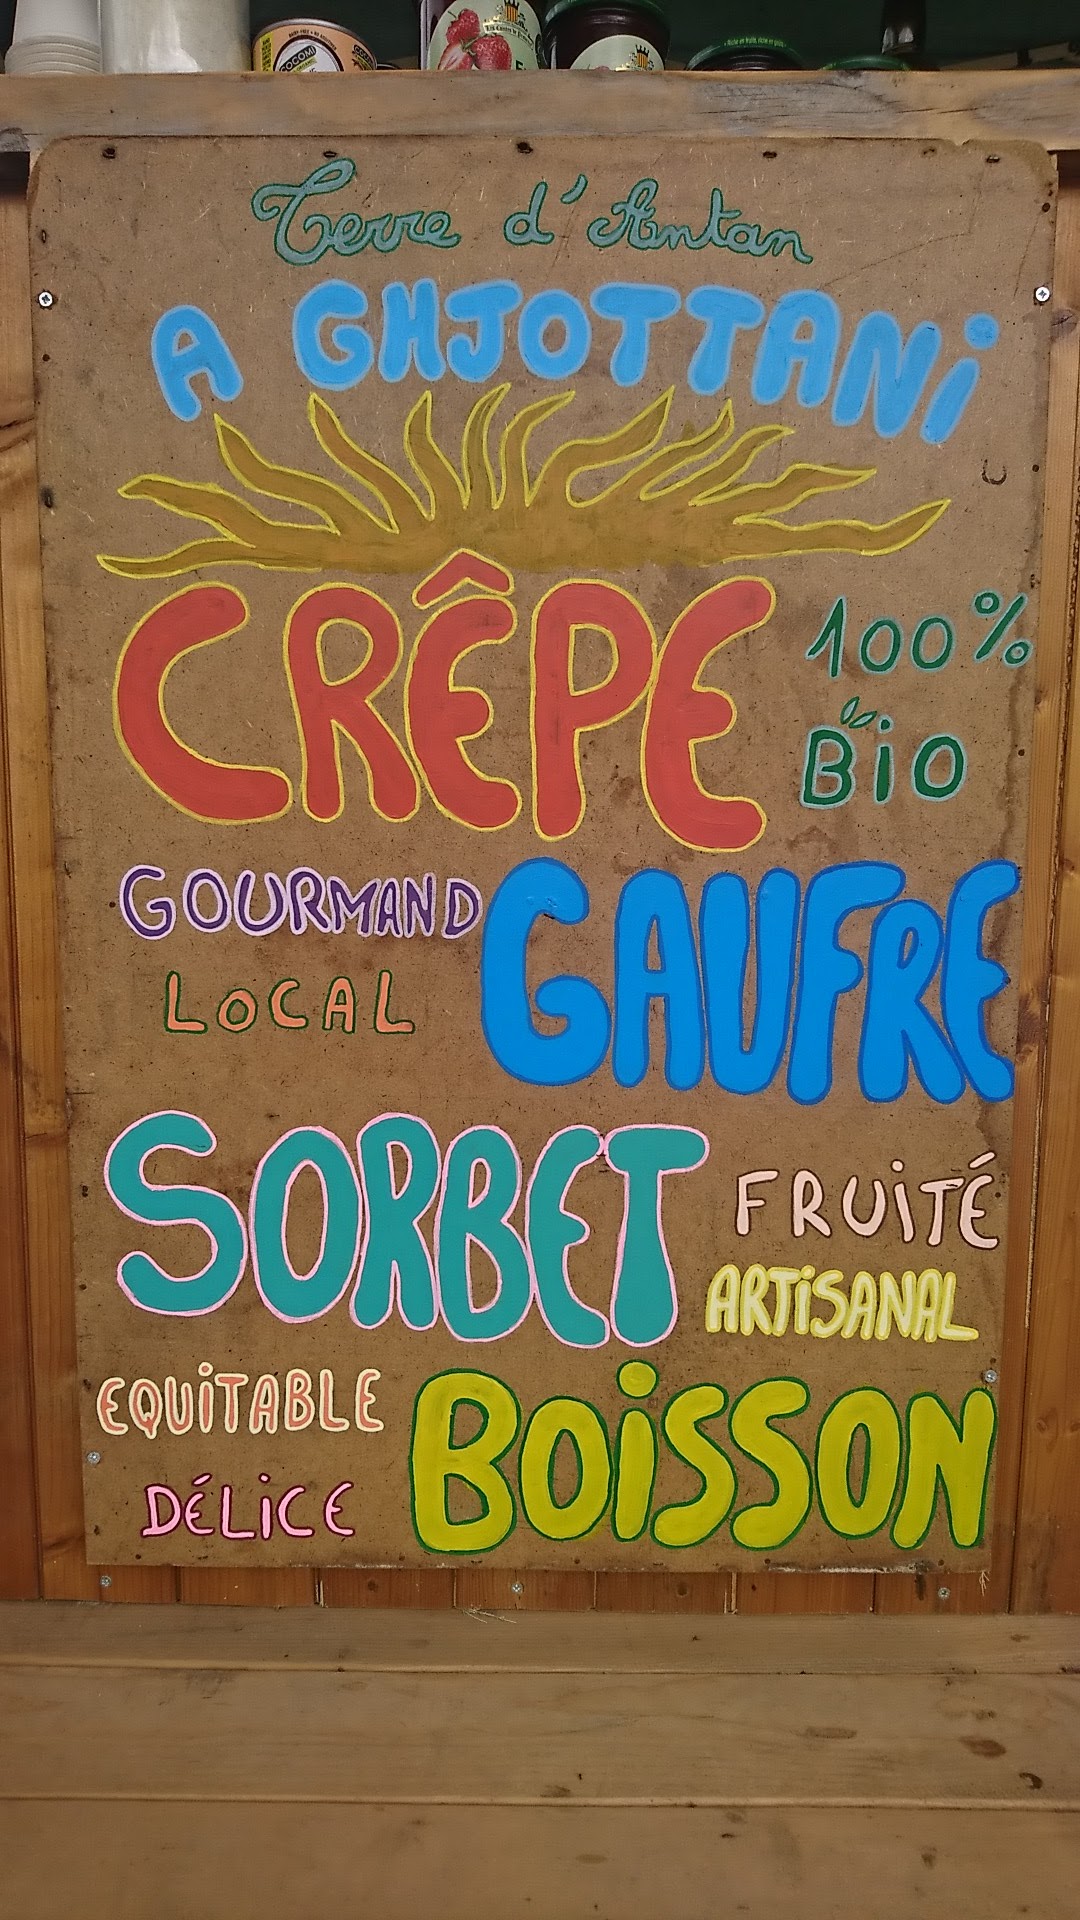 COCOMI
Terre d'Antan
A GHJOTTANi
CRÊPE
100%
BiO
GOURMAND
GAUFRE
LOCAL
SORBET
FRUiTÉ
ARTiSANAL
EQUiTABLE
BOiSSON
DÉLiCE